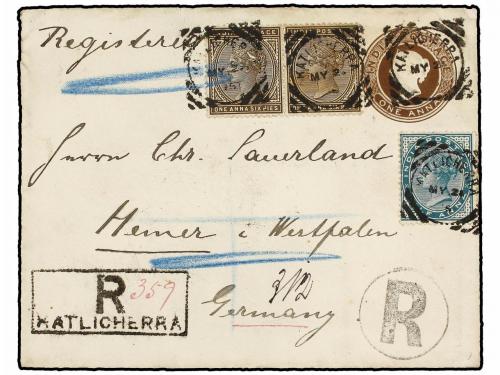 Registered
ONE ANNA SIX PIES
ONE ANNA
KATLICHERRA
MY
KATLICHERRA
MY 2
KATLICHERRA
MY
KATLICHERRA
MY 2
Herrn Chr. Sauerland
Hemer i Westfalen
312
Germany
R 359
KATLICHERRA
R